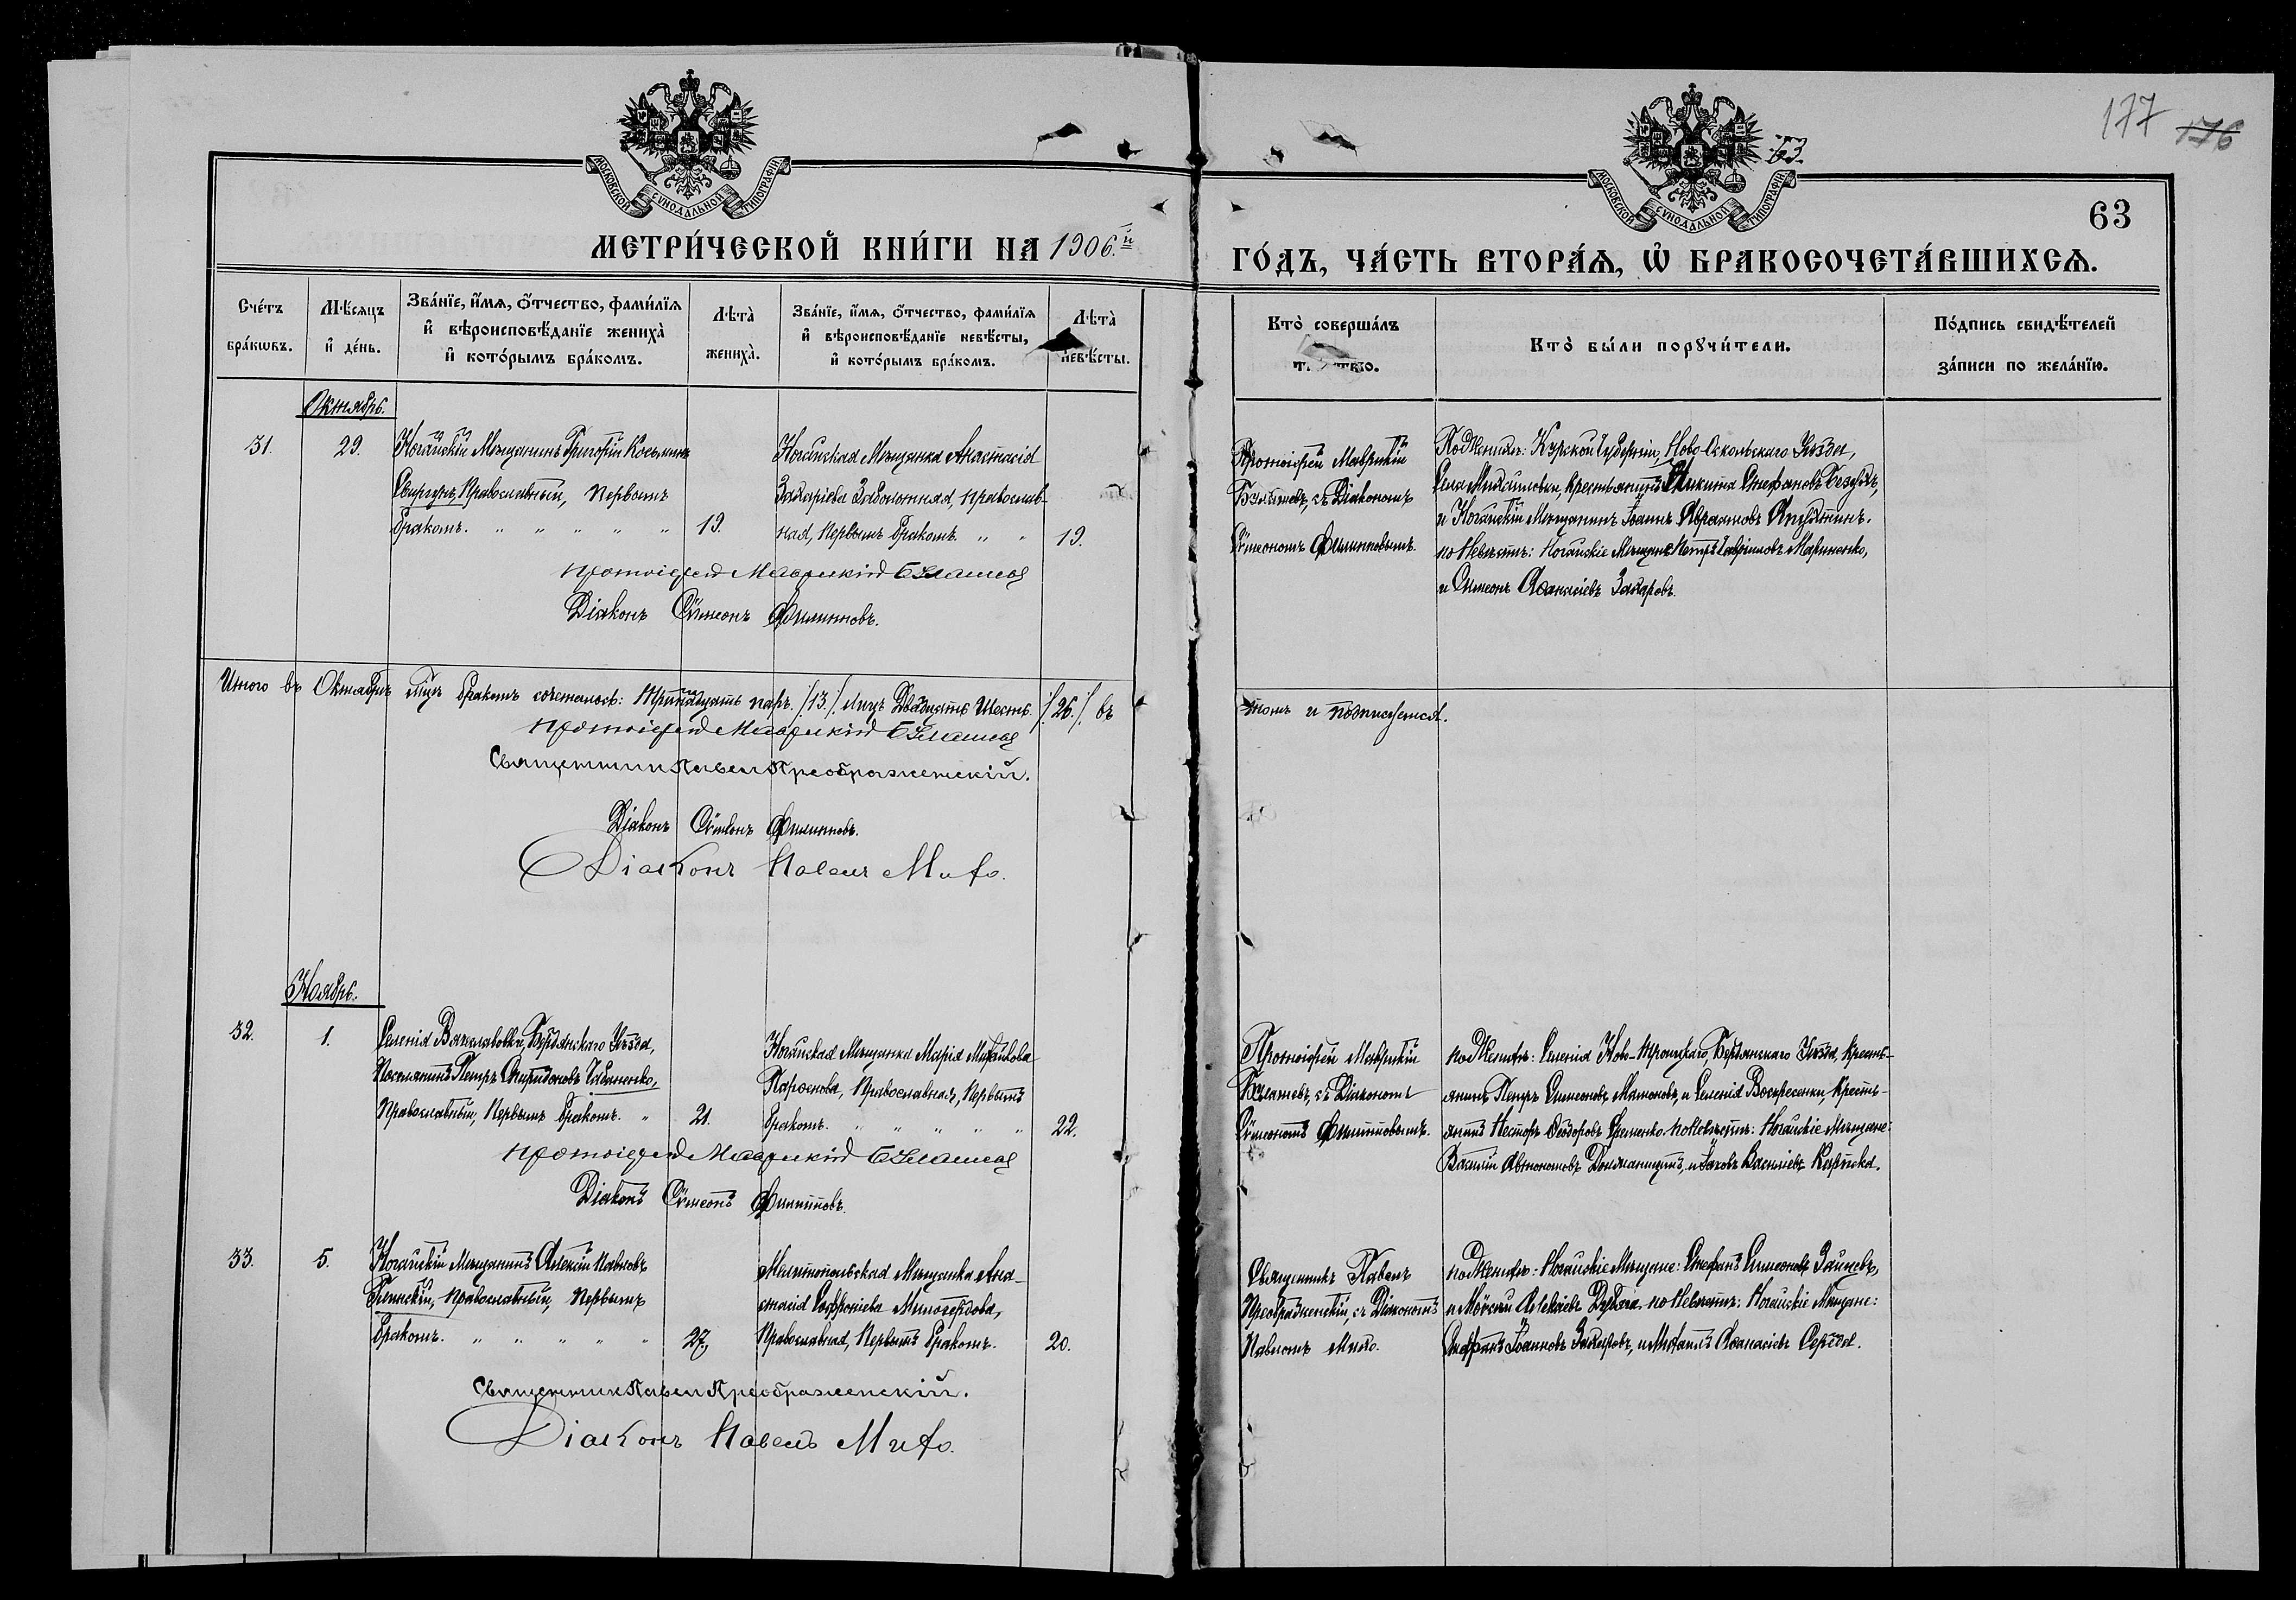 177 176
63.
МОСКОВСКОЙ СѴНОДАЛЬНОЙ ТИПОГРАФІИ
МОСКОВСКОЙ СѴНОДАЛЬНОЙ ТИПОГРАФІИ
63
МЕТРИ́ЧЕСКОЙ КНИ́ГИ НА 1906.й ГО́ДЪ, ЧА́СТЬ ВТОРА́Я, Ѡ҆ БРАКОСОЧЕТА́ВШИХСЯ.
Сче́тъ бра́кѡвъ.
Мѣ́сяцъ и҆ де́нь.
Зва́нїе, и҆́мя, ѻ҆́тчество, фами́лїя
и҆ вѣроисповѣ́данїе жениха̀
и҆ кото́рымъ бра́комъ.
Лѣта̀ жениха̀.
Зва́нїе, и҆́мя, ѻ҆́тчество, фами́лїя
и҆ вѣроисповѣ́данїе невѣ́сты,
и҆ кото́рымъ бра́комъ.
Лѣта̀ невѣ́сты.
Кто̀ соверша́лъ
Кто̀ бы́ли порꙋчи́тели.
По́дпись свидѣ́телей
за́писи по жела́нїю.
Октябрь.
31.
29.
Ногайскій Мѣщанинъ Григорій Косьминъ
Свиргунъ, Православный, Первымъ
бракомъ. " " " " "
19.
Ногайская Мѣщанка Анастасія
Захаріева Заболотняя, Православ-
ная, Первымъ бракомъ. " "
19.
Протоіерей Маврикій
Бѣлашевъ, съ Діакономъ
Сѵмеономъ Филипповымъ.
По Женихѣ: Курской Губерніи, Ново-Оскольскаго Уѣзда,
Села Михайловки, Крестьянинъ Никита Стефановъ
и Ногайскій Мѣщанинъ Іоаннъ Авраамовъ
по Невѣстѣ: Ногайскіе Мѣщане Петръ Гавріиловъ Мариненко,
и Симеонъ Аѳанасіевъ Захаровъ.
Протоіерей Маврикій Бѣлашевъ
Діаконъ Сѵмеонъ Филипповъ.
Итого въ Октябрѣ М-цѣ бракомъ сочеталось: Тринадцать паръ /13./ Лицъ Двадцать Шесть /26./ въ
томъ и подписуемся.
Протоіерей Маврикій Бѣлашевъ
Священникъ Павелъ Преображенскій.
Діаконъ Сѵмеонъ Филипповъ.
Діаконъ Павелъ Мито.
Ноябрь.
32.
1.
Селенія Вячеславовки, Бердянскаго Уѣзда,
Поселянинъ Петръ Спиридоновъ Чабаненко,
Православный, Первымъ бракомъ. "
21.
Ногайская Мѣщанка Марія Михайлова
Парѳенова, Православная, Первымъ
бракомъ. " " " " "
22.
Протоіерей Маврикій
Бѣлашевъ, съ Діакономъ
Сѵмеономъ Филипповымъ.
по Женихѣ: Селенія Ново-Троицкаго, Бердянскаго Уѣзда, Кресть-
янинъ Петръ Симеоновъ Матоновъ, и Селенія Воскресенки, Кресть-
янинъ Несторъ Ѳеодоровъ Еременко. по Невѣстѣ: Ногайскіе Мѣщане:
Василій Автономовъ и Іаковъ Васильевъ
Протоіерей Маврикій Бѣлашевъ
Діаконъ Сѵмеонъ Филипповъ.
33.
5.
Ногайскій Мѣщанинъ Алексій Павловъ
Православный, Первымъ
бракомъ. " " " " "
27.
Мелитопольская Мѣщанка Ана-
стасія Софроніева Милосердова,
Православная, Первымъ бракомъ.
20.
Священникъ Павелъ
Преображенскій, съ Діакономъ
Павломъ Мито.
по Женихѣ: Ногайскіе Мѣщане: Стефанъ Симеоновъ Зайцевъ,
и Мойсей Алексіевъ по Невѣстѣ: Ногайскіе Мѣщане:
Стефанъ Іоанновъ Захаровъ, и Аѳанасіевъ Середа.
Священникъ Павелъ Преображенскій.
Діаконъ Павелъ Мито.